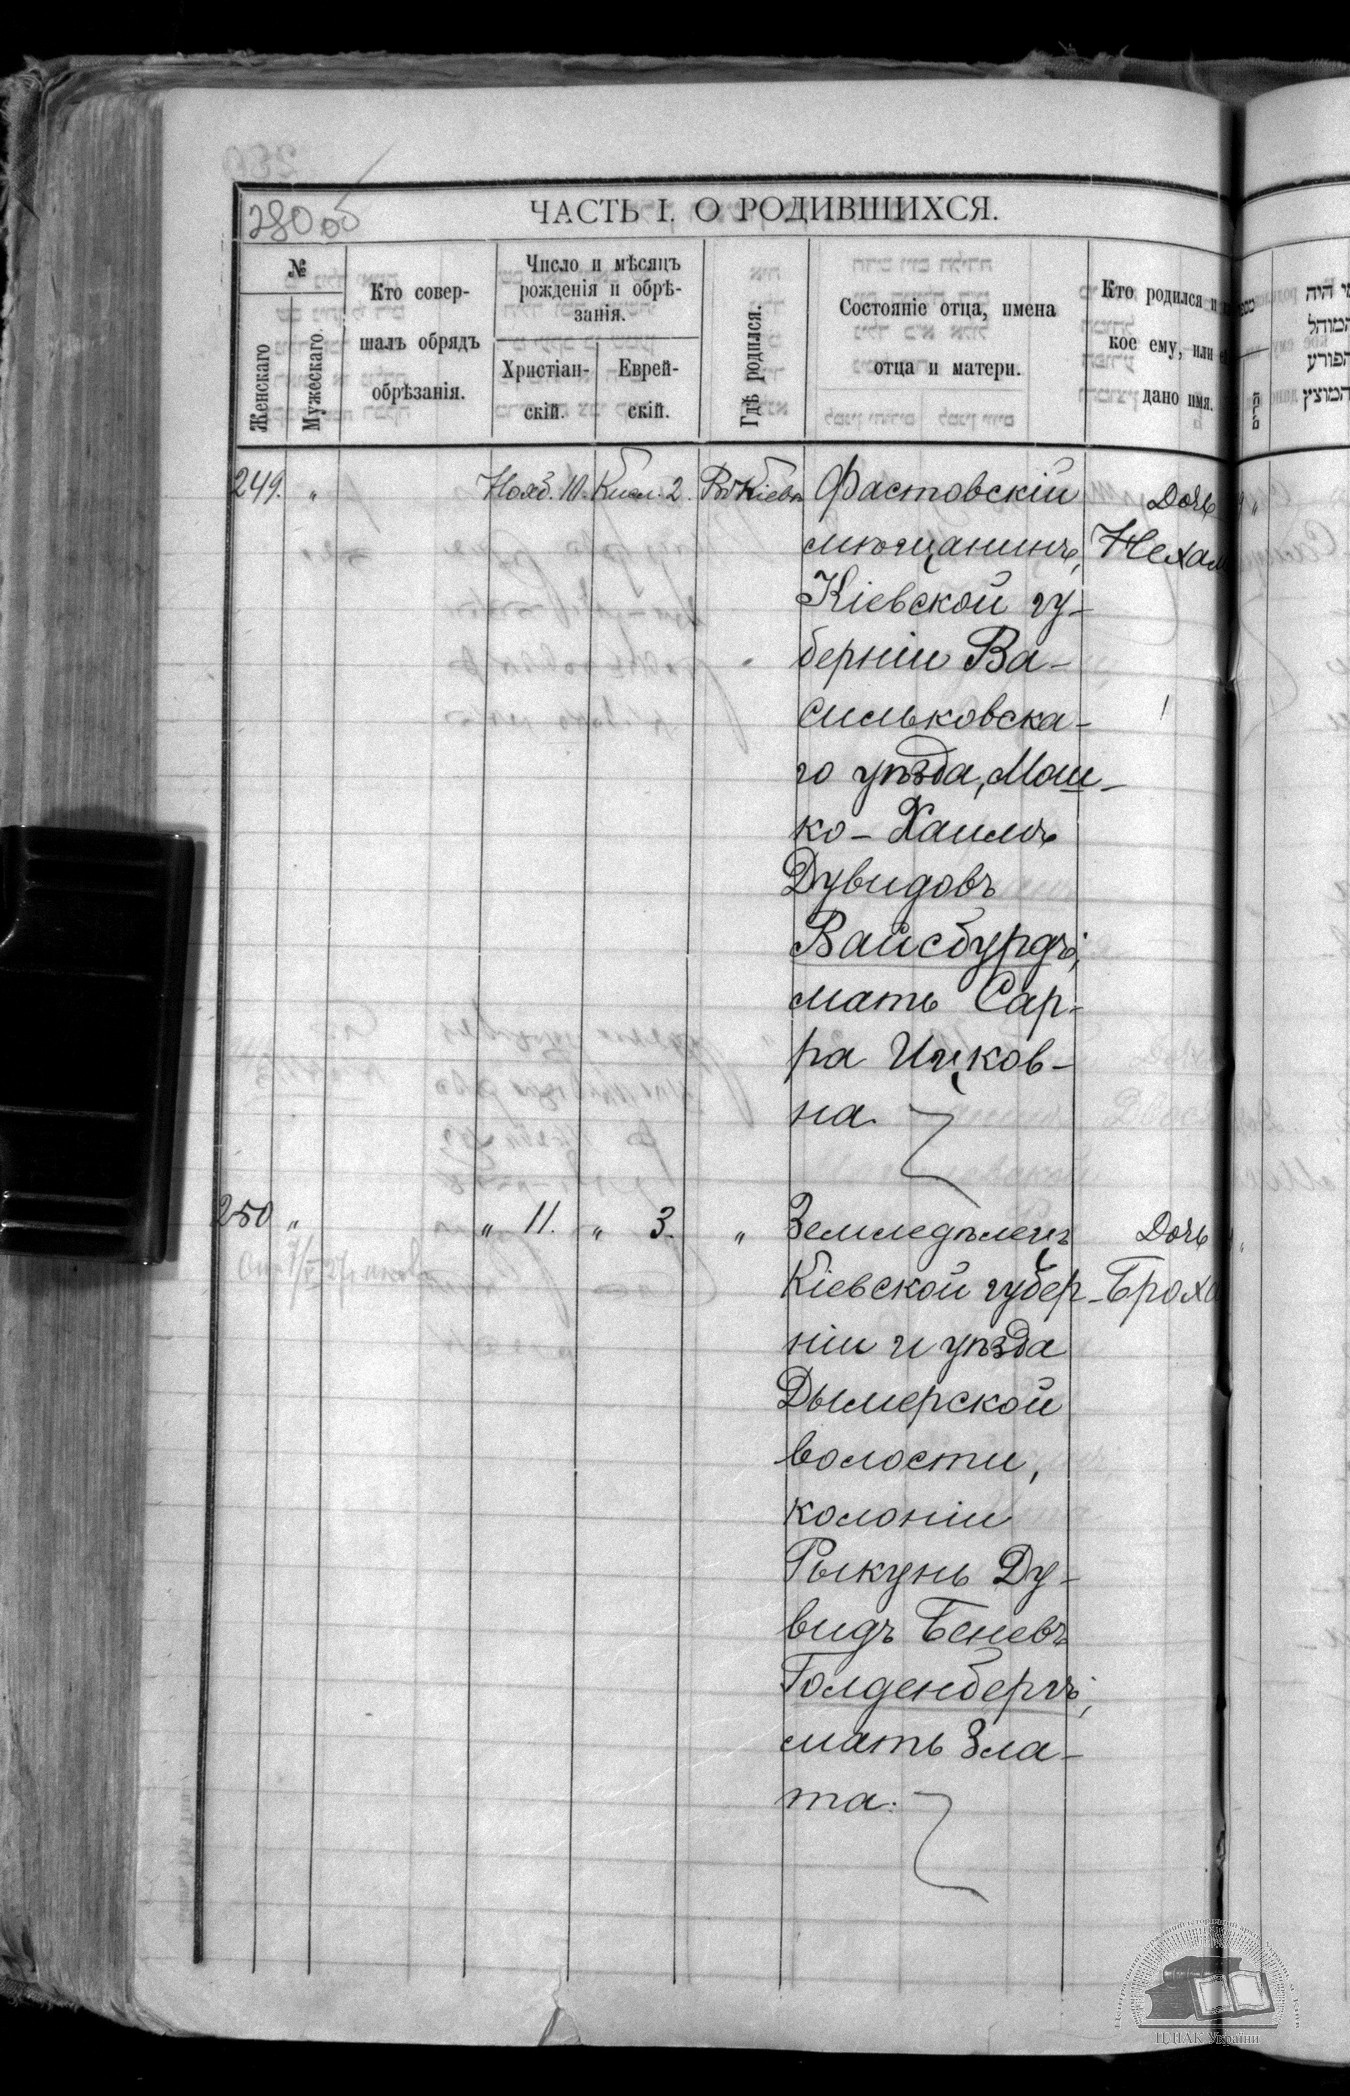 280 об
ЧАСТЬ I. О РОДИВШИХСЯ.
№
Женскаго
Мужескаго
Кто совер-
шалъ обрядъ
обрѣзанія.
Число и мѣсяцъ
рожденія и обрѣ-
занія.
Христіан-
скій.
Еврей-
скій.
Гдѣ родился.
Состояніе отца, имена
отца и матери.
Кто родился и
кое ему, или
дано имя.
249. " Нояб. 10. Кисл. 2. Въ Кіевѣ Фастовскій Дочь
мѣщанинъ, Нехам
Кіевской гу-
берніи Ва-
сильковска-
го уѣзда, Мош-
ко-Хаимъ
Дувидовъ
Вайсбурдъ;
мать Сар-
ра Ицков-
на.
250 " " 11. " 3. " Земледѣлецъ Дочь
Кіевской губер- Броха
ніи и уѣзда
Дымерской
волости,
колоніи
Рыкунь Ду-
видъ Беневъ
Голденбергъ;
мать Зла-
та.
היה
המוהל
הפורע
המוצץ
ЦДІАК України